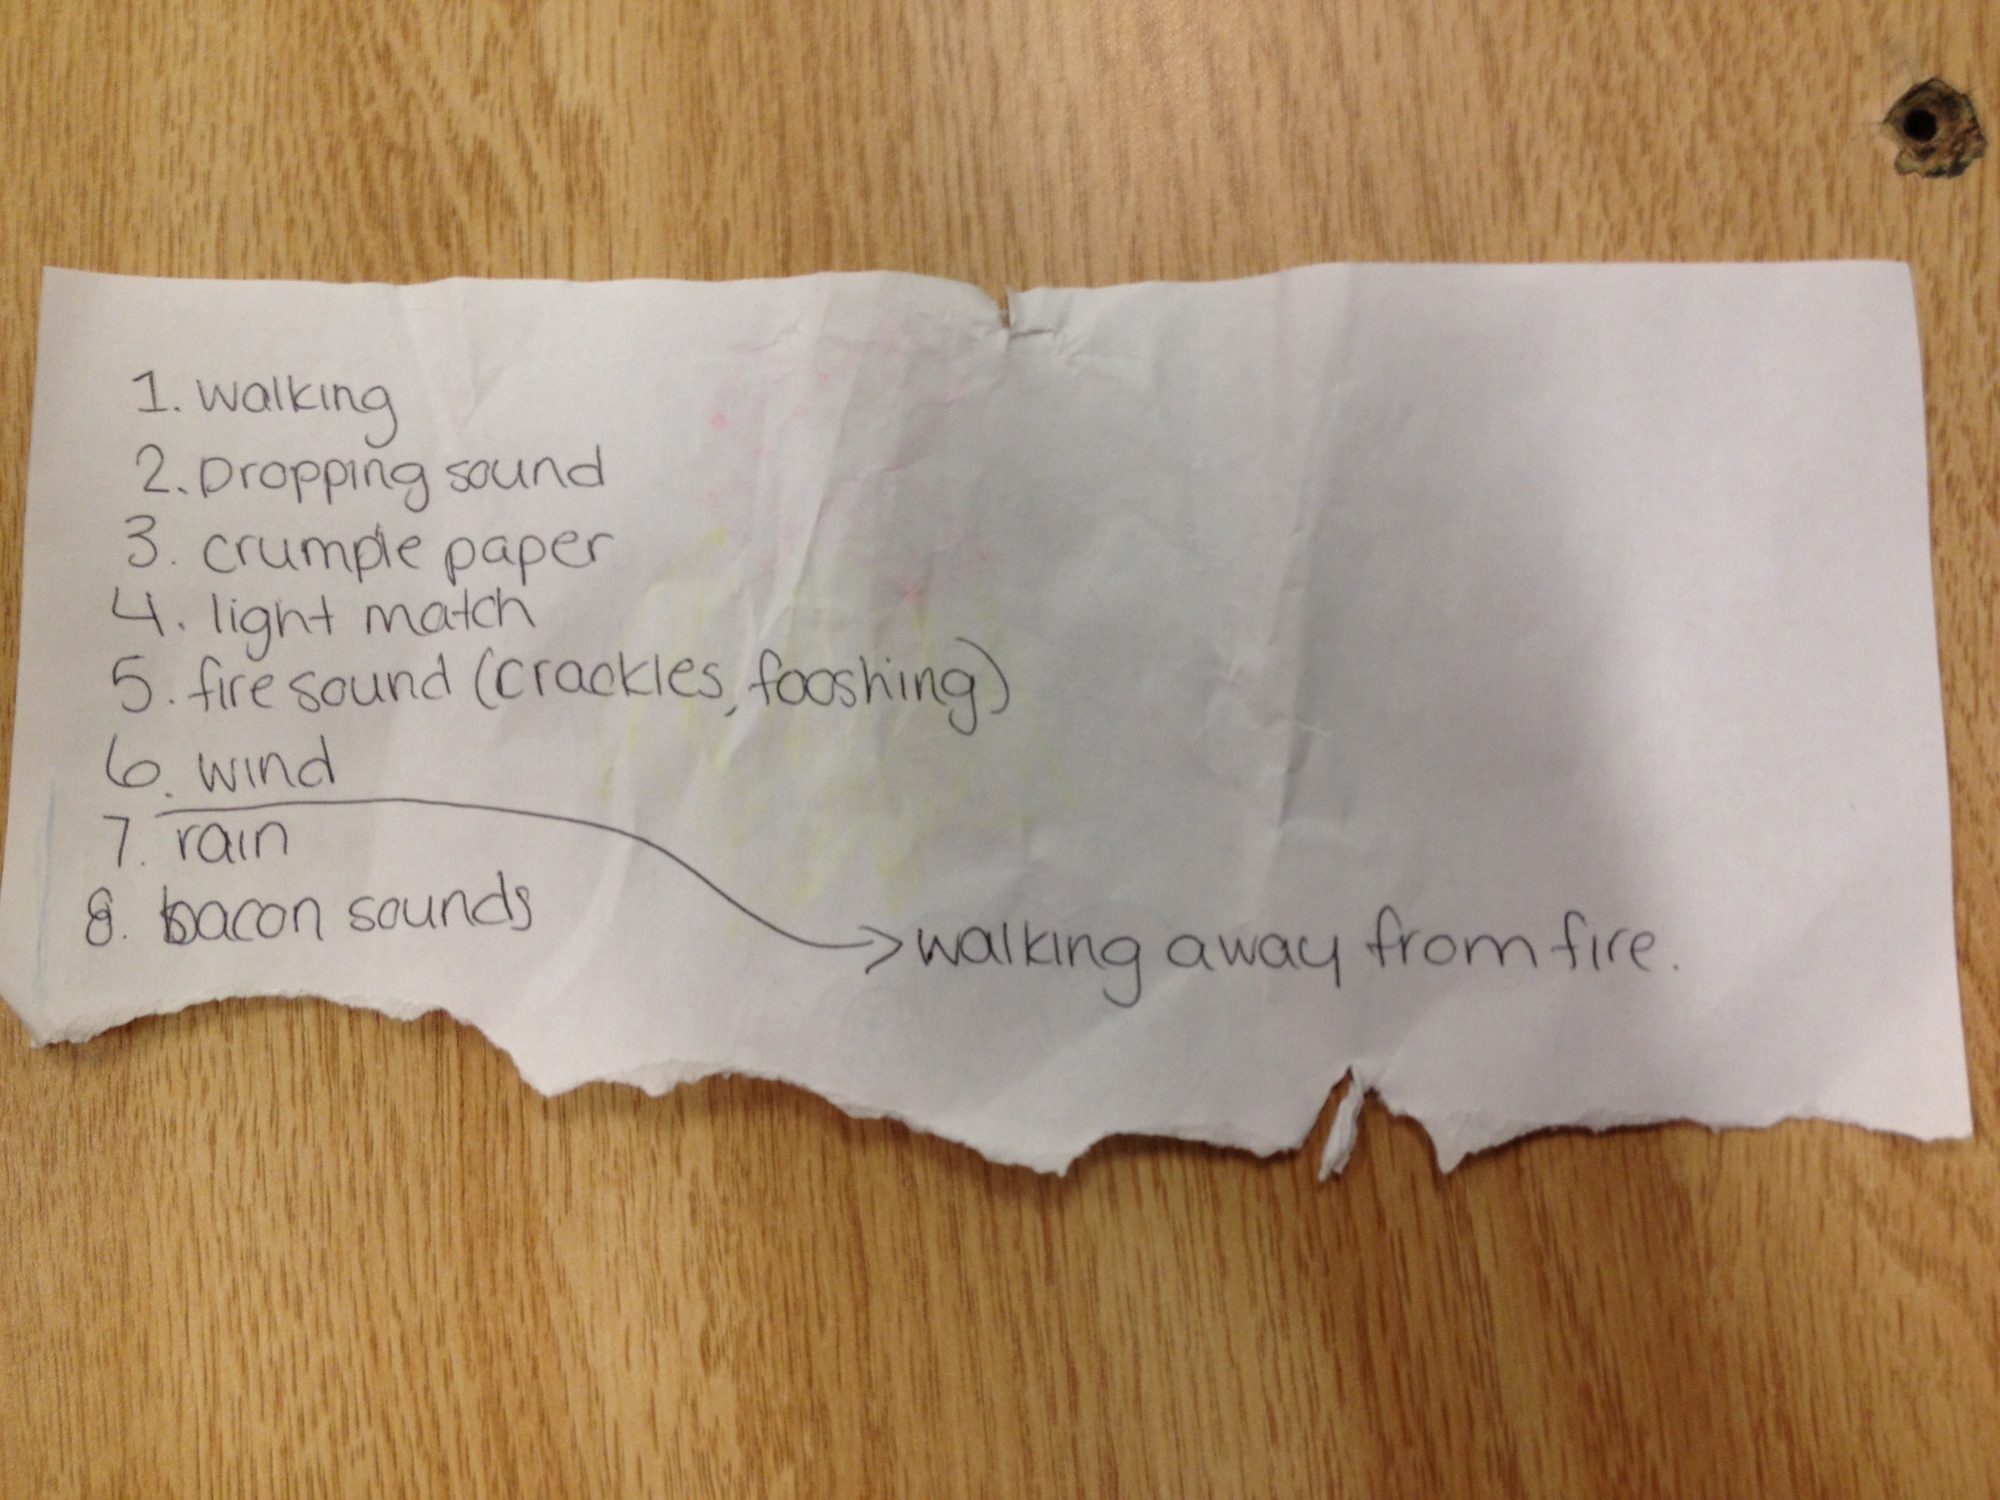 1. walking
2. Dropping sound
3. crumple paper
4. light match
5. fire sound (crackles, fooshing)
6. wind
7. rain
8. bacon sounds
→ walking away from fire.